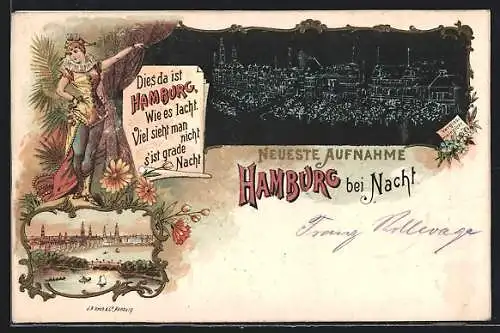 Dies da ist
HAMBURG,
Wie es lacht.
Viel sieht man
nicht
s'ist grade
Nacht
NEUESTE AUFNAHME
HAMBURG bei Nacht
Franz